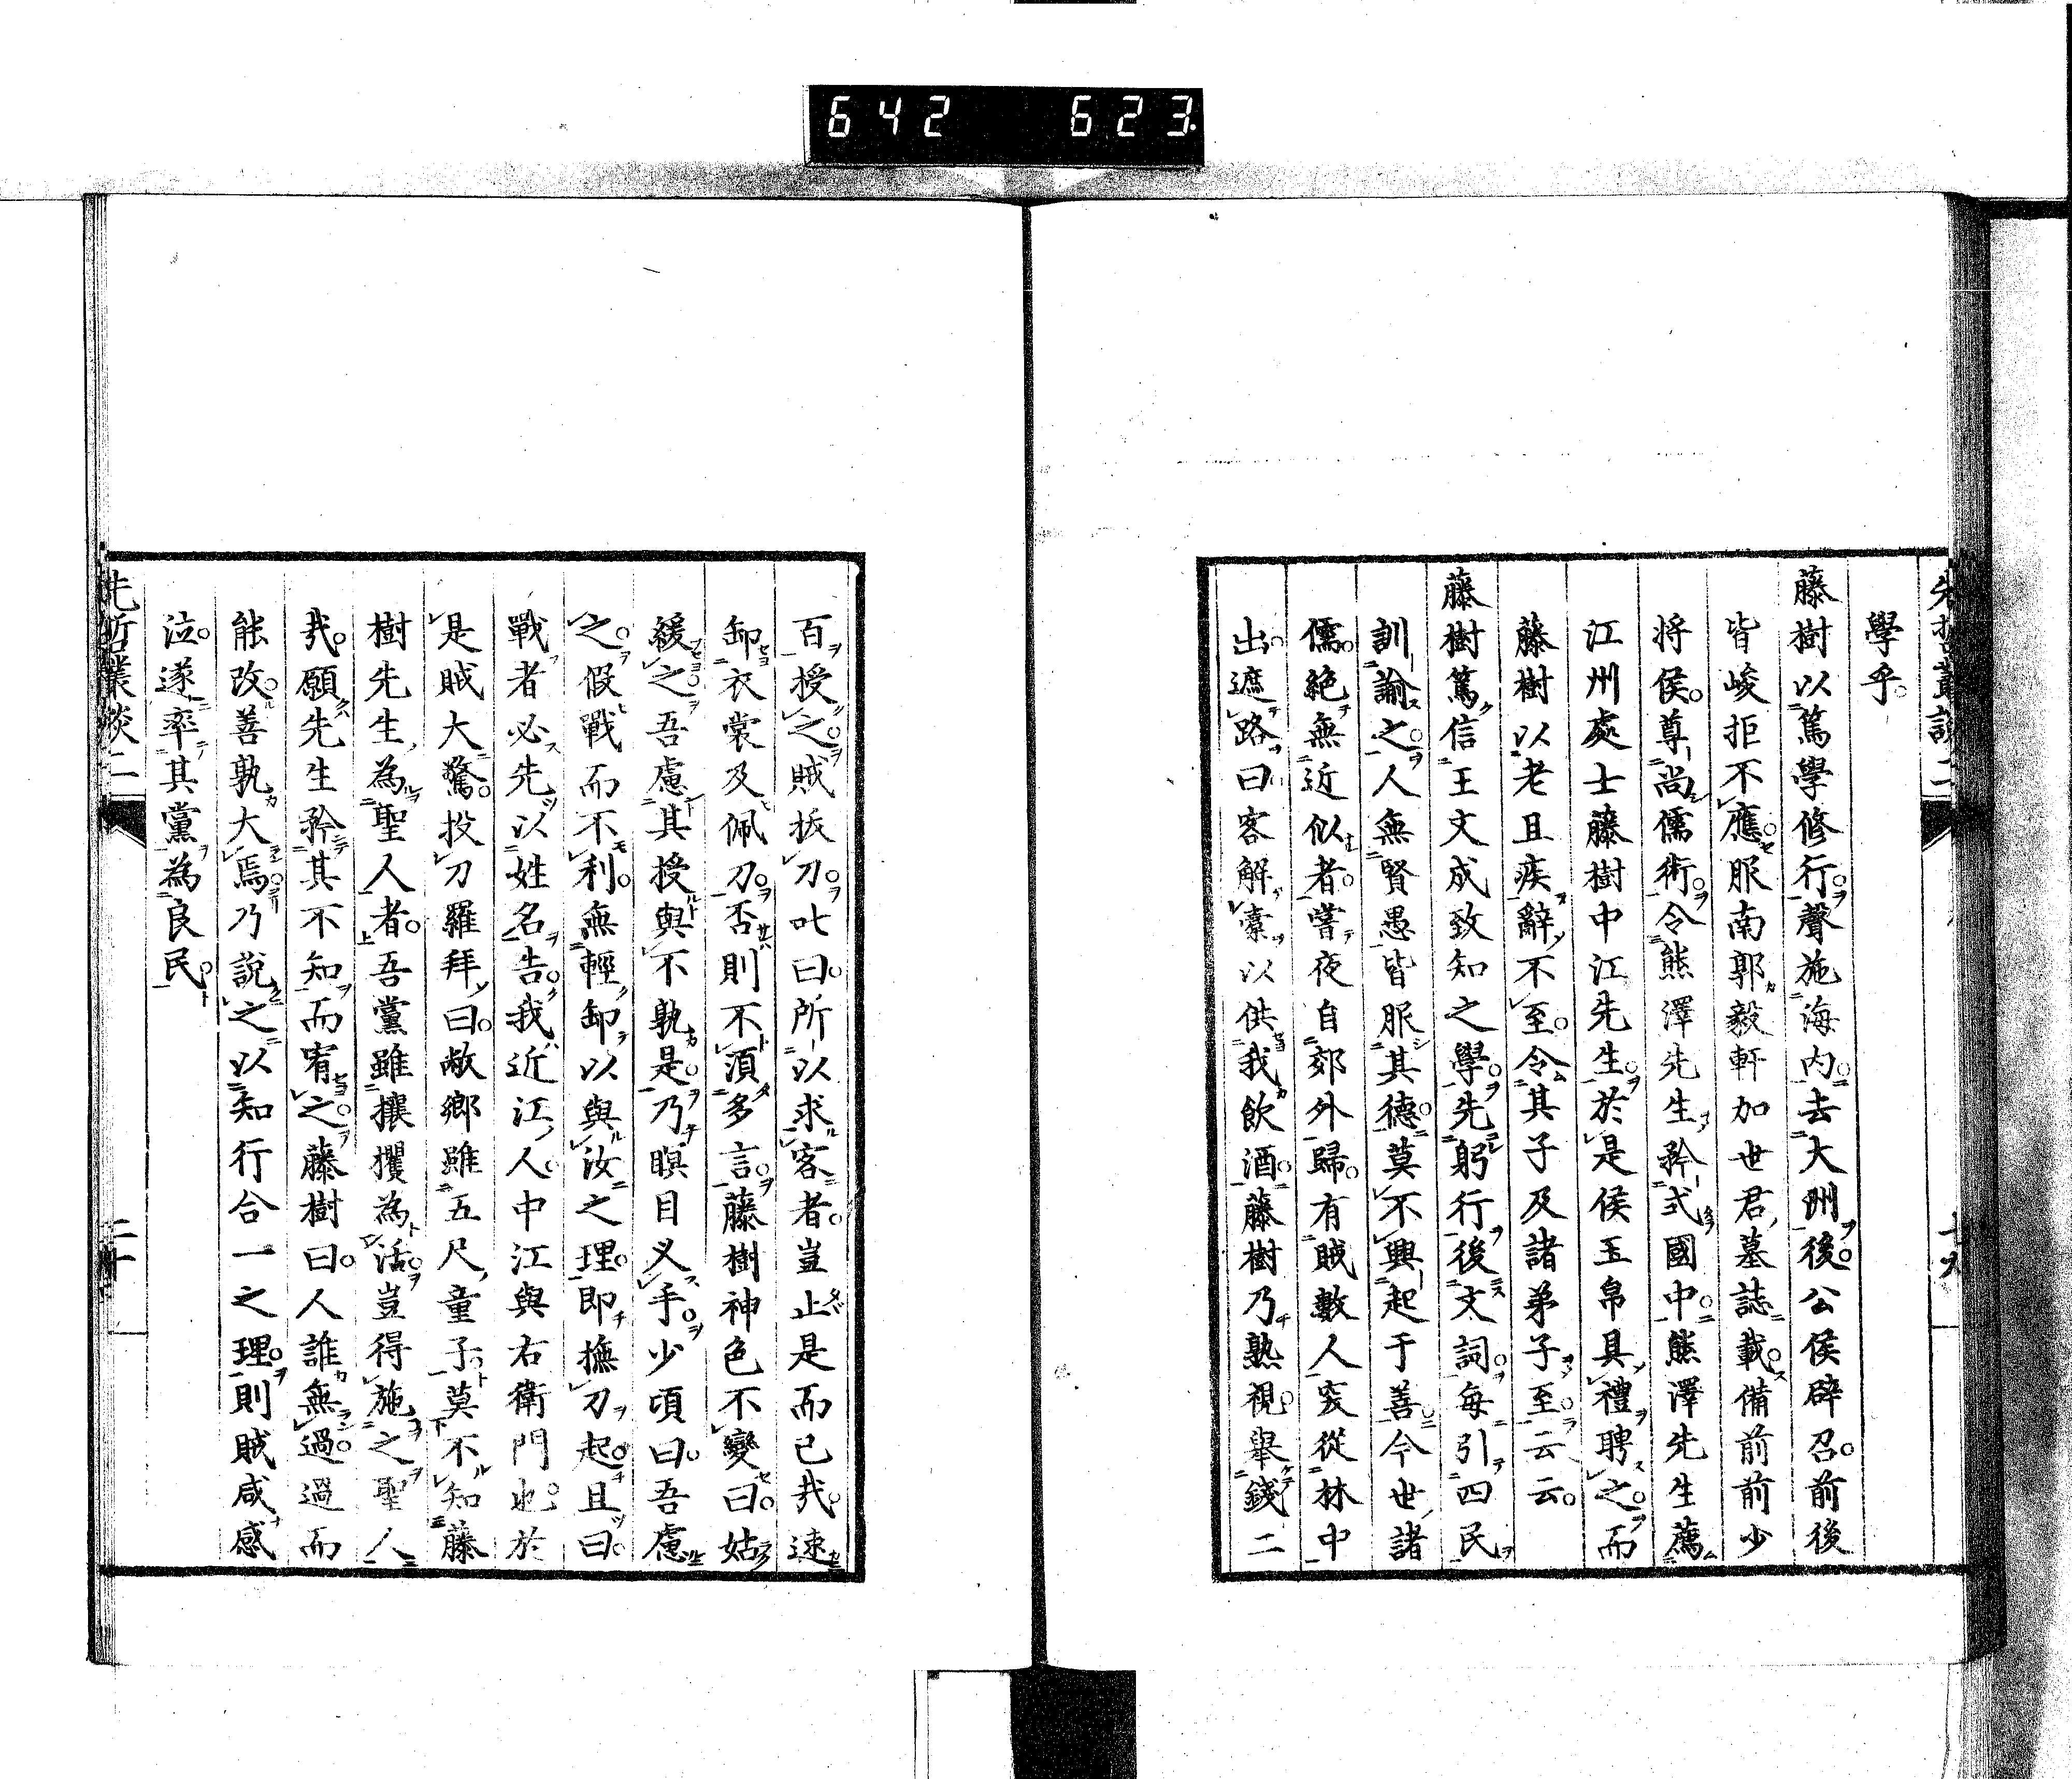 642 623.
先哲叢談二
十九
學乎。
藤樹以篤學修行。聲施海内。去大洲後。公侯辟召。前後
皆峻拒不應。服南郭毅軒加世君墓誌載。備前前少
将侯。尊尚儒術。令熊澤先生矜式國中。熊澤先生薦
江州處士藤樹中江先生。於是侯玉帛具禮聘之。而
藤樹以老且疾辭不至。令其子及諸弟子至云云。
藤樹篤信王文成致知之學。先躬行後文詞。每引四民
訓諭之。人無賢愚皆服其德。莫不興起于善。今世諸
儒。絶無近似者。嘗夜自郊外歸。有賊數人。突從林中
出。遮路曰。客解橐以供我飲酒。藤樹乃熟視。舉錢二
百授之。賊拔刀。叱曰。所以求客者。豈止是而已哉。速
卸衣裳及佩刀。否則不須多言。藤樹神色不變曰。姑
緩之。吾慮其授與不孰是。乃瞑目义手。少頃曰。吾慮
之。假戰而不利。無輕卸以與汝之理。即撫刀起。且曰。
戰者必先以姓名告。我近江人。中江與右衛門也。於
是賊大驚。投刀羅拜曰。敝鄉雖五尺童子。莫不知藤
樹先生為聖人者。吾黨雖攘攫為活。豈得施之聖人
哉。願先生矜其不知而宥之。藤樹曰。人誰無過。過而
能改。善孰大焉。乃說之以知行合一之理。則賊咸感
泣。遂率其黨為良民。
先哲叢談二
二十